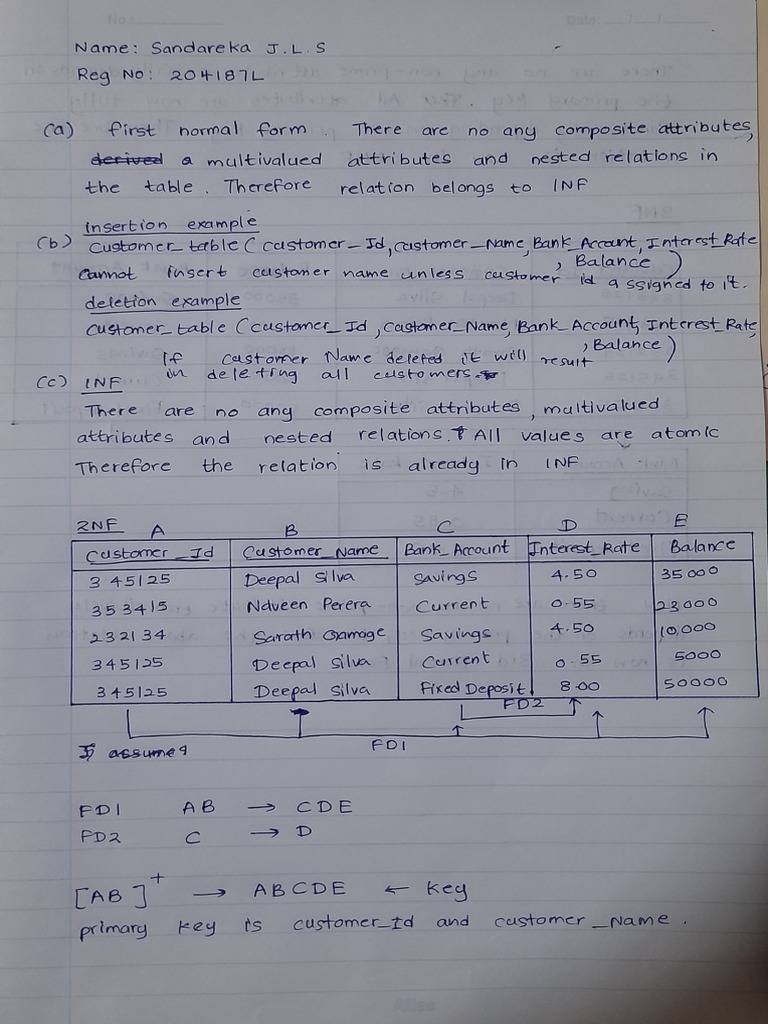 No:
Date:
Name: Sandareka J.L.S
Reg No: 204187L
(a) first normal form. There are no any composite attributes,
derived a multivalued attributes and nested relations in
the table. Therefore relation belongs to 1NF
Insertion example
(b) Customer_table (customer_Id, customer_Name, Bank_Account, Interest_Rate
, Balance)
Cannot insert customer name unless customer id assigned to it.
deletion example
Customer_table (customer_Id, customer_Name, Bank_Account, Interest_Rate,
, Balance)
If customer Name deleted it will result
in deleting all customers.
(c) 1NF
There are no any composite attributes, multivalued
attributes and nested relations. All values are atomic
Therefore the relation is already in 1NF
2NF A B C D E
Customer_Id Customer_Name Bank_Account Interest_Rate Balance
345125 Deepal Silva Savings 4.50 35000
353415 Naveen Perera Current 0.55 23000
232134 Sarath Gamage Savings 4.50 10,000
345125 Deepal Silva Current 0.55 5000
345125 Deepal Silva Fixed Deposit 8.00 50000
FD2
FD1
assume
FD1 AB → CDE
FD2 C → D
[AB]+ → ABCDE ← Key
primary key is customer_Id and customer_Name.